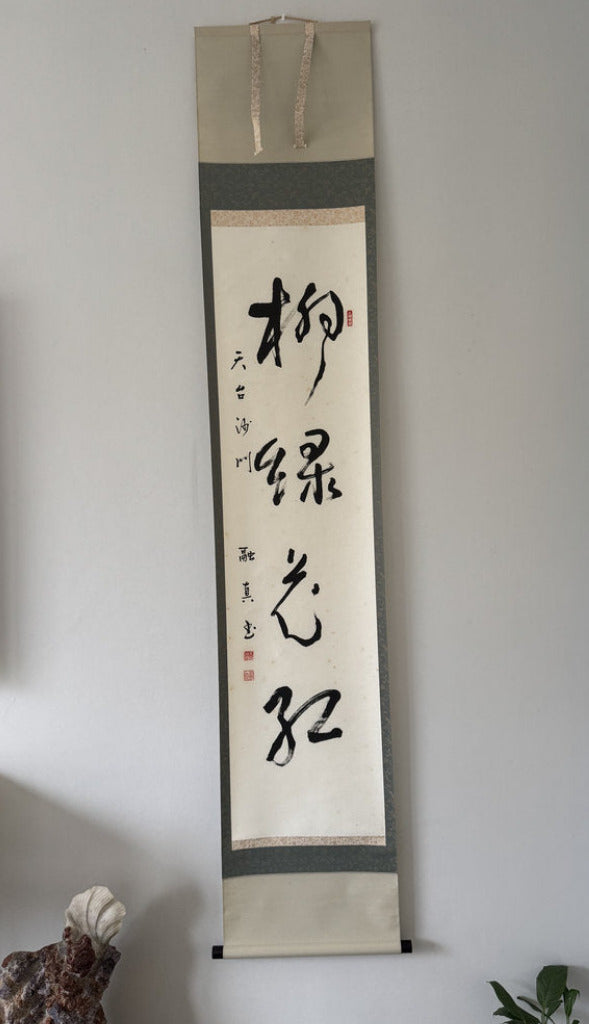 柳緑花紅
天台沙門 融真書